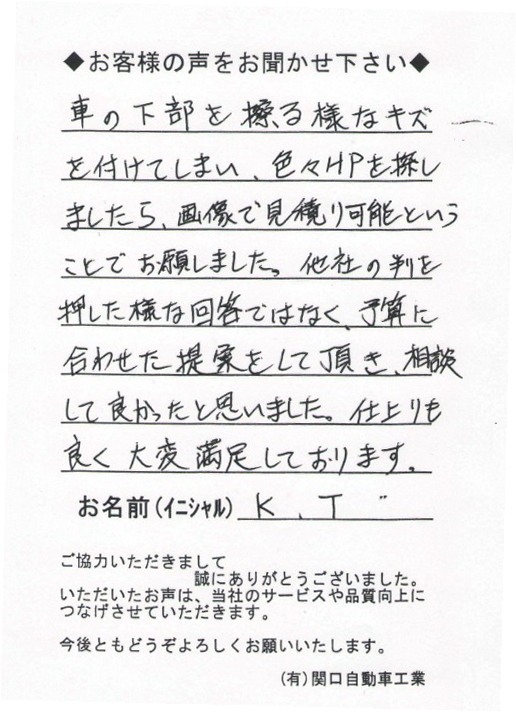 ◆お客様の声をお聞かせ下さい◆
車の下部を擦る様なキズ
を付けてしまい、色々HPを探し
ましたら、画像で見積り可能という
ことでお願しました。他社の判を
押した様な回答ではなく、予算に
合わせた提案をして頂き、相談
して良かったと思いました。仕上りも
良く大変満足しております。
お名前(イニシャル) K.T
ご協力いただきまして
誠にありがとうございました。
いただいたお声は、当社のサービスや品質向上に
つなげさせていただきます。
今後ともどうぞよろしくお願いいたします。
(有)関口自動車工業